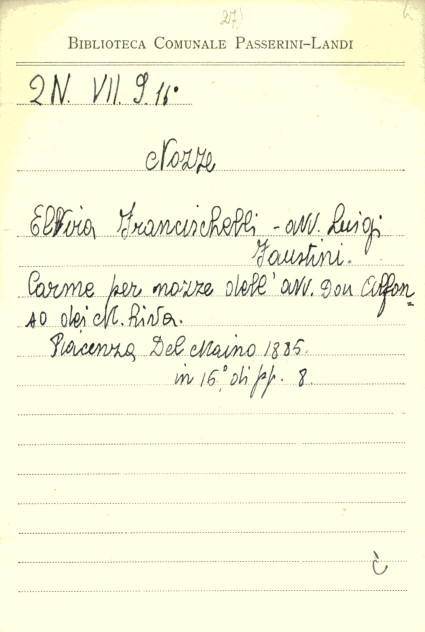 27)
BIBLIOTECA COMUNALE PASSERINI-LANDI
2N. VII. 9. 16°
Nozze
Elvia Francischelli - avv. Luigi
Faustini.
Carme per nozze dell' avv. Don Alfon=
so dei M. Riva.
Piacenza Del Maino 1885.
in 16°. di pp. 8.
č